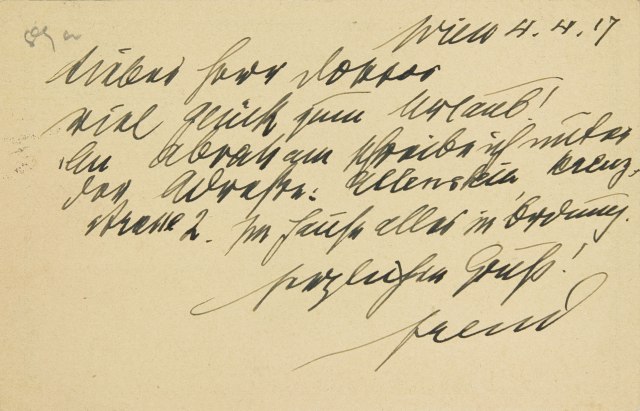 Wien 4.4.17
Lieber Herr Doktor
viel Glück zum Urlaub!
An Abraham schreibe ich unter
der Adresse: Allenstein Kreuz-
strasse 2. Im Hause alles in Ordnung.
Herzlichen Gruß!
Freud